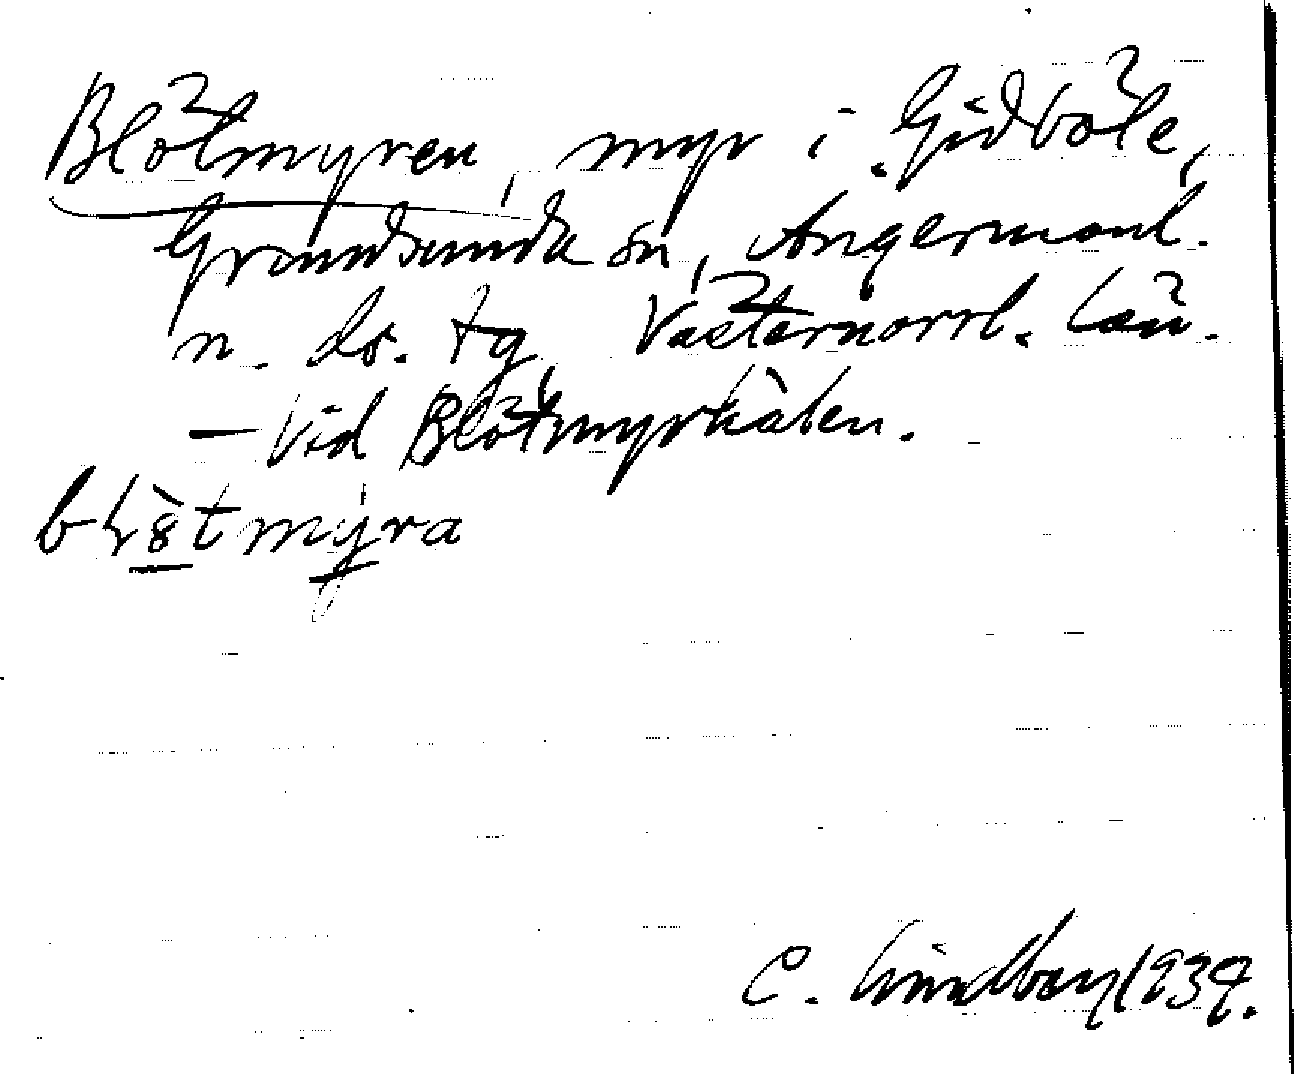 Blötmyren, myr i Gidböle,
Grundsunda sn, Ångermanl.
n. ds. tg, Västernorrl. län.
— Vid Blötmyrkälen.
blötmyra
C. Lindberg 1939.